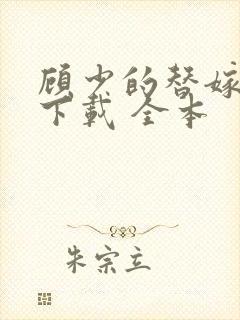 顾少的替嫁
下载 全本
朱宗立